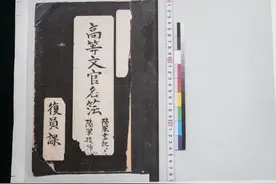 高等文官名簿
陸軍書記
陸軍技師
復員課